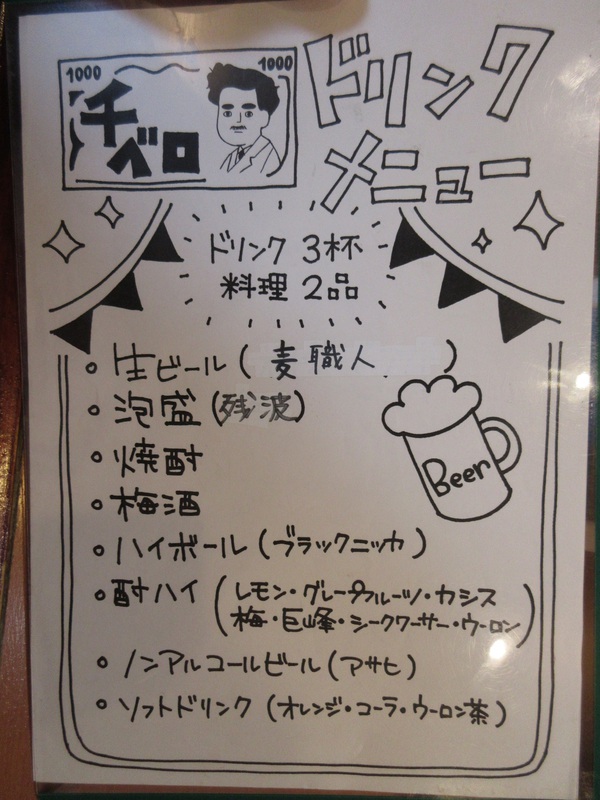 1000
1000
千ベロ
ドリンク
メニュー
ドリンク 3杯
料理 2品
生ビール(麦職人)
泡盛(残波)
焼酎
梅酒
ハイボール(ブラックニッカ)
酎ハイ(レモン・グレープフルーツ・カシス
梅・巨峰・シークワーサー・ウーロン)
ノンアルコールビール(アサヒ)
ソフトドリンク(オレンジ・コーラ・ウーロン茶)
Beer